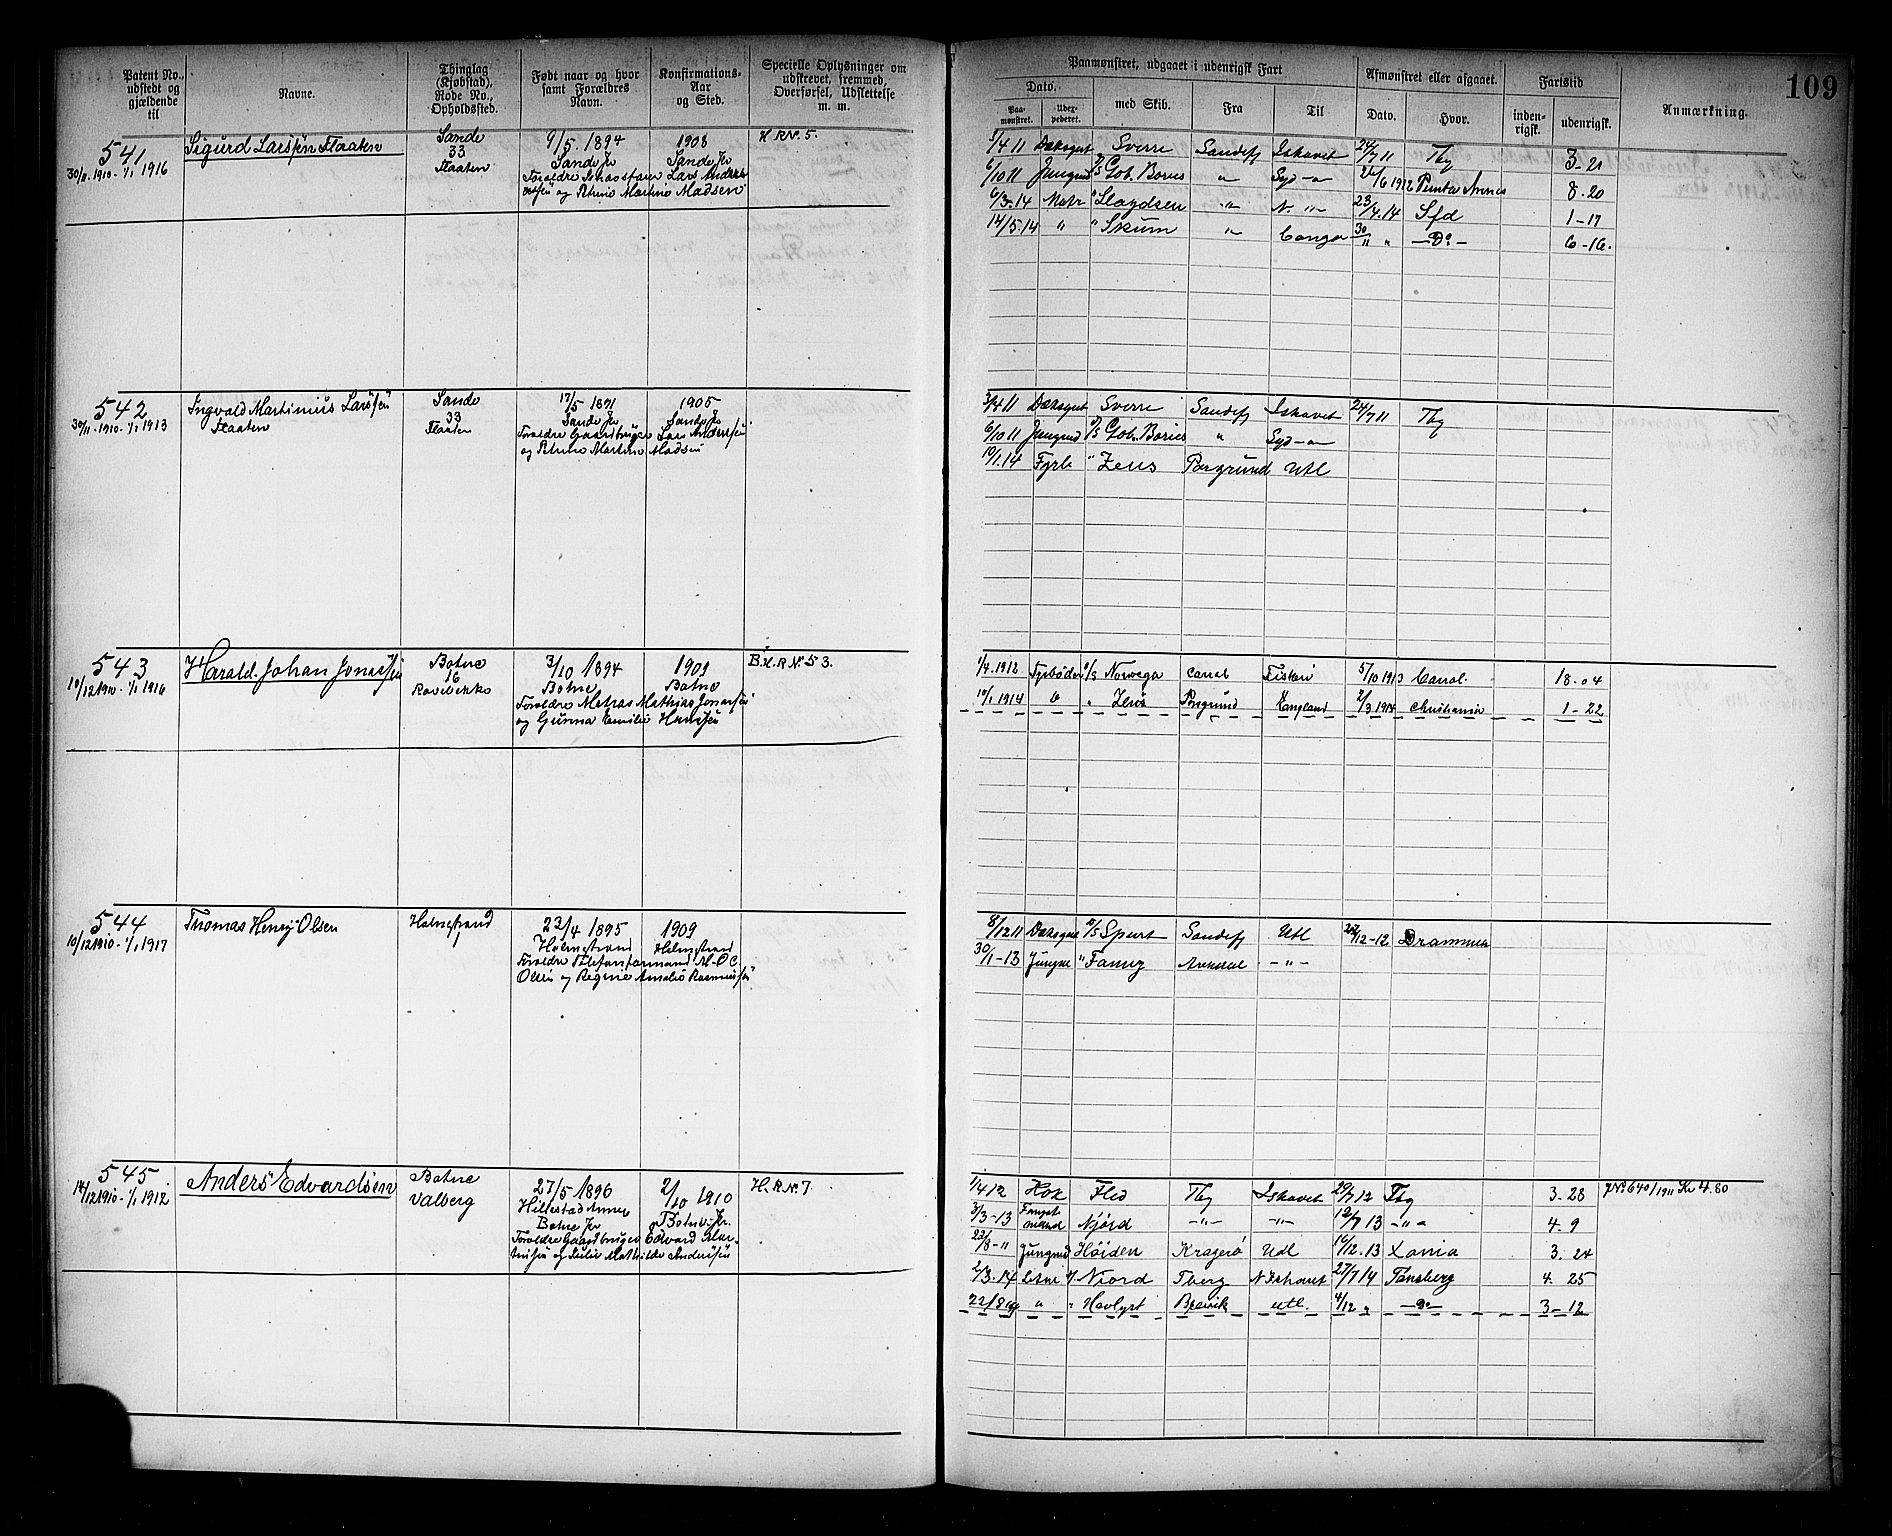 109
Patent No., udstedt og gjældende til
Navne.
Thinglag (Kjøbstad), Rode No., Opholdssted.
Født naar og hvor samt Forældres Navn.
Konfirmations- Aar og Sted.
Specielle Oplysninger om udskrevet, fremmed, Overførsel, Udslettelse m. m.
Paamønstret, udgaaet i udenrigsk Fart
Dato.
Paa- mønstret.
med Skib.
Fra
Til
Afmønstret eller afgaaet.
Dato.
Hvor.
Fartstid
inden- rigsk.
udenrigsk.
Anmærkning.
541
30/11-1910-1/1 1916
Sigurd Larssen Flaaten
Sande
33
Flaaten
9/5. 1894
Sande Jr
1908
Sande Jr
H.R.Nº 5.
og Petrine Martine Madsen
1/4 11 Dæksgut Sverre Sandefj Ishavet 24/7 11 Tbg 3-21
6/10 11 Jungmd Syd-" 8-20
6/3-14 Matr 23/4.14 Sfd 1-17
14/5.14 " " Skum " Congo 30/11 " -Dº- 6-16.
542
30/11-1910-1/1 1913
Ingvald Martinius Larssen
Flaaten
Sande
33
Flaaten
17/5 1891
Sande Jr
1905
Sande Jr
Forældre Gaardbruger Lars Andersen
og Petrine Martine Madsen
3/4 11 Dæksgut Sverre Sandefj Ishavet 24/7 11 Tbg
6/10 11 Jungmd Syd-"
10/1.14 Fyrb " Zeus Porsgrund Utl
543
10/12 1910-1/1 1916
Harald Johan Jonassen
Botne
16
3/10 1894
Botne
1909
Botne
B.H.R Nº 53.
Forældre Matros Mathias Jonassen
og Gunna Emilie Hansen
1/4.1912 Fyrbøder D/S Norwega 5/10 1913 18-04
10/1 1914 " Zeus Porsgrund England 2/3 1914 Christiania 1-22
544
10/12 1910-1/1 1917
Thomas Henry Olsen
Holmestrand
23/4 1895
Holmestrand
1909
Holmestrand
Olsen og Regine Amalie Rasmussen
8/12 11 Dæksgut D/S Spurt Sandefj Utl 22/12-12 Drammen
30/1-13 Jungm " Fanny Arendal -"-
545
14/12 1910-1/1 1912
Anders Edvardsen
Botne
Valberg
27/5 1896
Hillestad Annex
Botne Jr
2/10 1910
Botne Jr.
H.R.Nº 7.
Forældre Gaardbruger Edvard Mar-
tinsen og Julie Mathilde Andersen
1/4 12 Kok Tbg Ishavet 29/7 12 Tbg 3-28 JNº 640/1911 Kr 4.80
3/3-13 Njord -"- -"- 12/7 13 -"- 4-9
22/8-" Jungmd Høiden Kragerø Udl 16/12.13 Xania 3-24
2/3.14 Njord Tberg N Ishavet 27/7 14 Tønsberg 4-25
22/8 14 " " Havlyst Brevik Utl. 4/12 " -Dº- 3-12